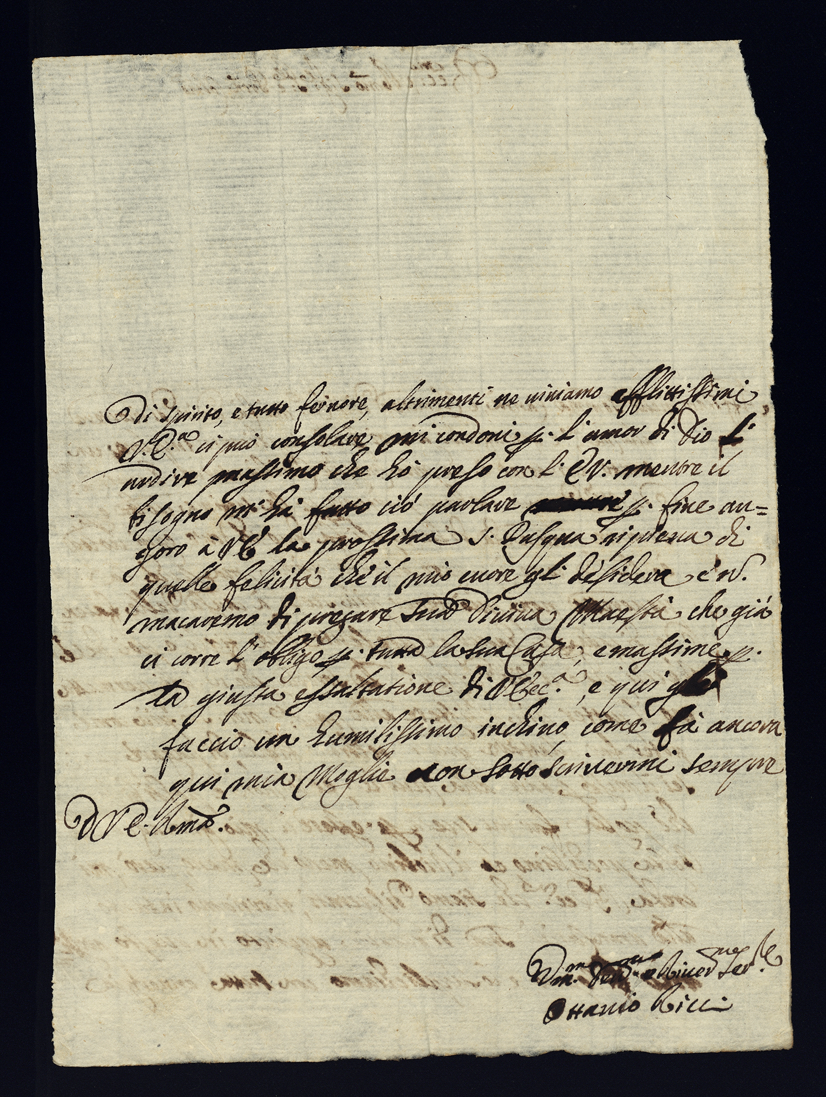 Di spirito, e tutto fervore, altrimenti ne viviamo afflittissimi
V. E.za ci può consolare mi condoni p. l'amor di Dio l'
ardire massimo che hò preso con l'E.V. mentre il
bisogno m'hà fatto ciò parlare p. fine au=
goro à VE la prossima S. Pasqua ripiena di
quelle felicità che il mio cuore gli desidera è n.
macaremo di pregare Sua Divina Maestà che già
ci corre l'obligo p. tutta la sua Casa, e massime p.
la giusta essaltatione di V.Ecc.a, e qui gli
faccio un humilissimo inchino, come fà ancora
qui mia Moglie con sotto scrivermi sempre
D V E. Ill.ma
Um.mo River.mo Ser.e
Ottavio Ricci